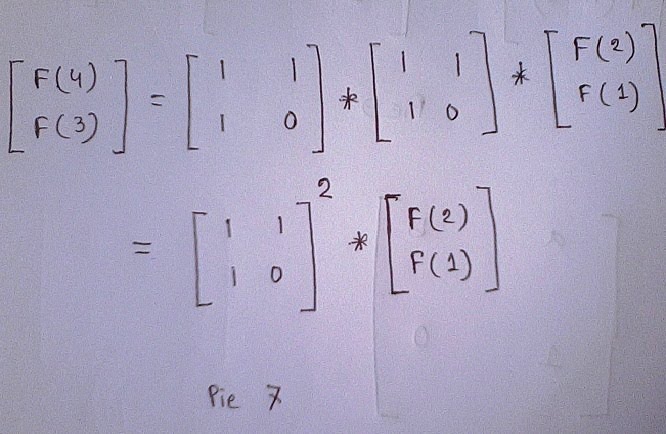 [F(4) F(3)] = [1 1 1 0] * [1 1 1 0] * [F(2) F(1)]
= [1 1 1 0]^2 * [F(2) F(1)]
Pie 7